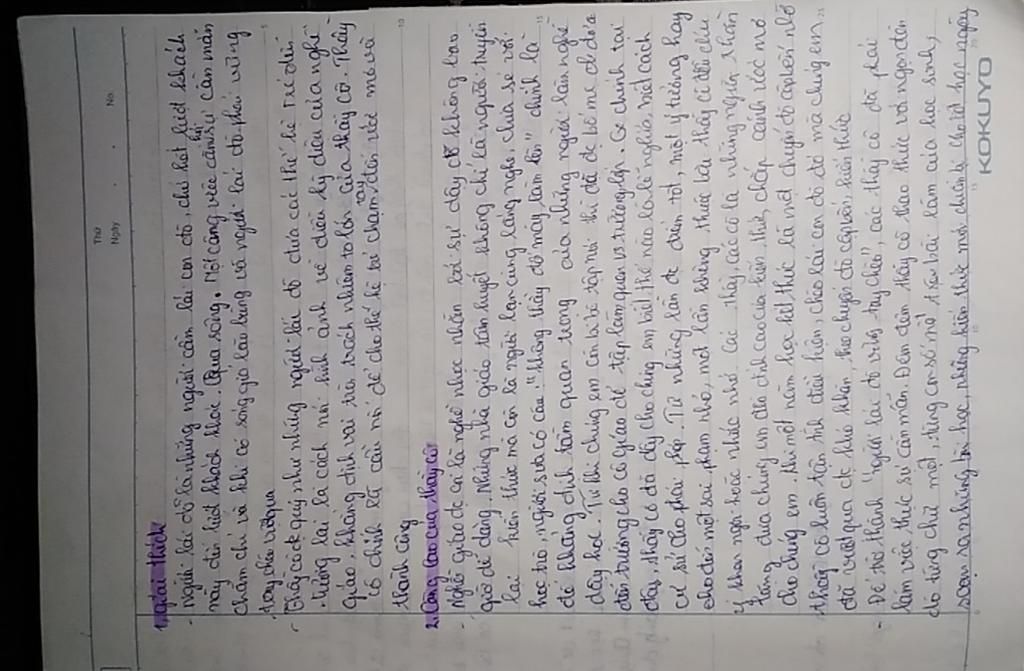 Thứ
Ngày
No.
1. Giải thích
- Người lái đò là những người cầm lái con đò, chở hết lượt khách
này đến lượt khách khác. Qua sông. Một công việc cần sự cần mẫn
chăm chỉ và khi có sóng gió lâu bằng và người lái đò phải vững
tay chèo vượt qua
- Thầy cô được quý như những người lái đò đưa các thế hệ trẻ đến
tương lai là cách nói hình ảnh về điều kỳ diệu của nghề
giáo. khẳng định vai trò, trách nhiệm to lớn của thầy cô. Thầy
cô chính là cầu nối để cho thế hệ trẻ chạm tay đến ước mơ và
thành công
2. Công lao của thầy cô
- Nghề giáo được coi là nghề nhọc nhằn bởi sự dạy dỗ không bao
giờ dễ dàng. Những nhà giáo tâm huyết không chỉ là người truyền
lại kiến thức mà còn là người bạn cùng lắng nghe chia sẻ với
học trò, người xưa có câu: "không thầy đố mày làm lên" chính là
để khẳng định tầm quan trọng của những người làm nghề
dạy học. Từ khi chúng em còn là bé tập nói thì đã được bố mẹ đưa
đến trường cho cô giáo để tập làm quen với trường, lớp. Cứ chính tại
đây, thầy cô đã dạy cho chúng em biết thế nào là lễ nghĩa, biết cách
cư xử cho phải phép. Từ những lần được điểm tốt, một ý tưởng hay
cho đến một sai phạm nhỏ, một lần không thuộc bài thầy cô đều chú
ý khen ngợi hoặc nhắc nhở. Các thầy, các cô là những người thầm
lặng đưa chúng em đến đỉnh cao của kiến thức, chắp cánh ước mơ
cho chúng em. Khi một năm học kết thúc là một chuyến đò cập bến nhờ
thầy cô luôn tận tình dìu hiền, chèo lái con đò đó mà chúng em
đã vượt qua được khó khăn, cho chuyến đò cập bến, kiến thức
- Để trở thành "người lái đò vững tay chèo", các thầy cô đã phải
làm việc thực sự cần mẫn. Đêm đêm thầy cô thao thức với ngọn đèn
dò từng chữ một, từng con số nhỏ trên bài làm của học sinh,
soạn ra những bài học, những kiến thức mới chuẩn bị cho tiết học ngày
KOKUYO